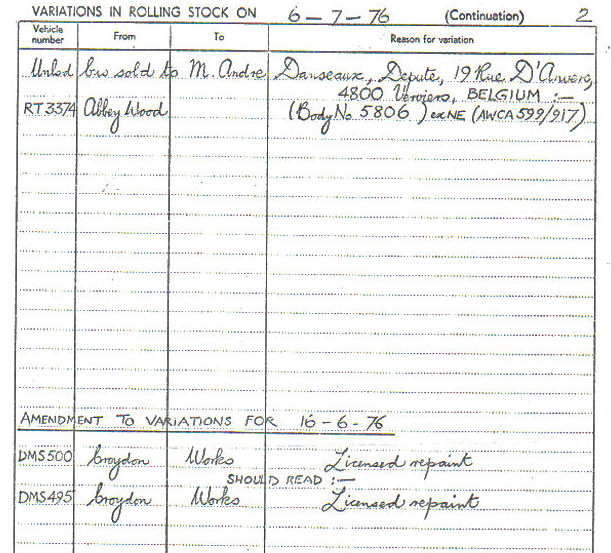 VARIATIONS IN ROLLING STOCK ON 6-7-76 (Continuation) 2
Vehicle number From To Reason for variation
Unlsd bus sold to M. Andre Danseaux, Depute, 19 Rue D'Anvers,
4800 Verviers, BELGIUM :—
RT3374 Abbey Wood (Body No 5806) ex NE (AWCA 599/917)
AMENDMENT TO VARIATIONS FOR 16-6-76
DMS500 Croydon Works Licensed repaint
SHOULD READ :—
DMS495 Croydon Works Licensed repaint